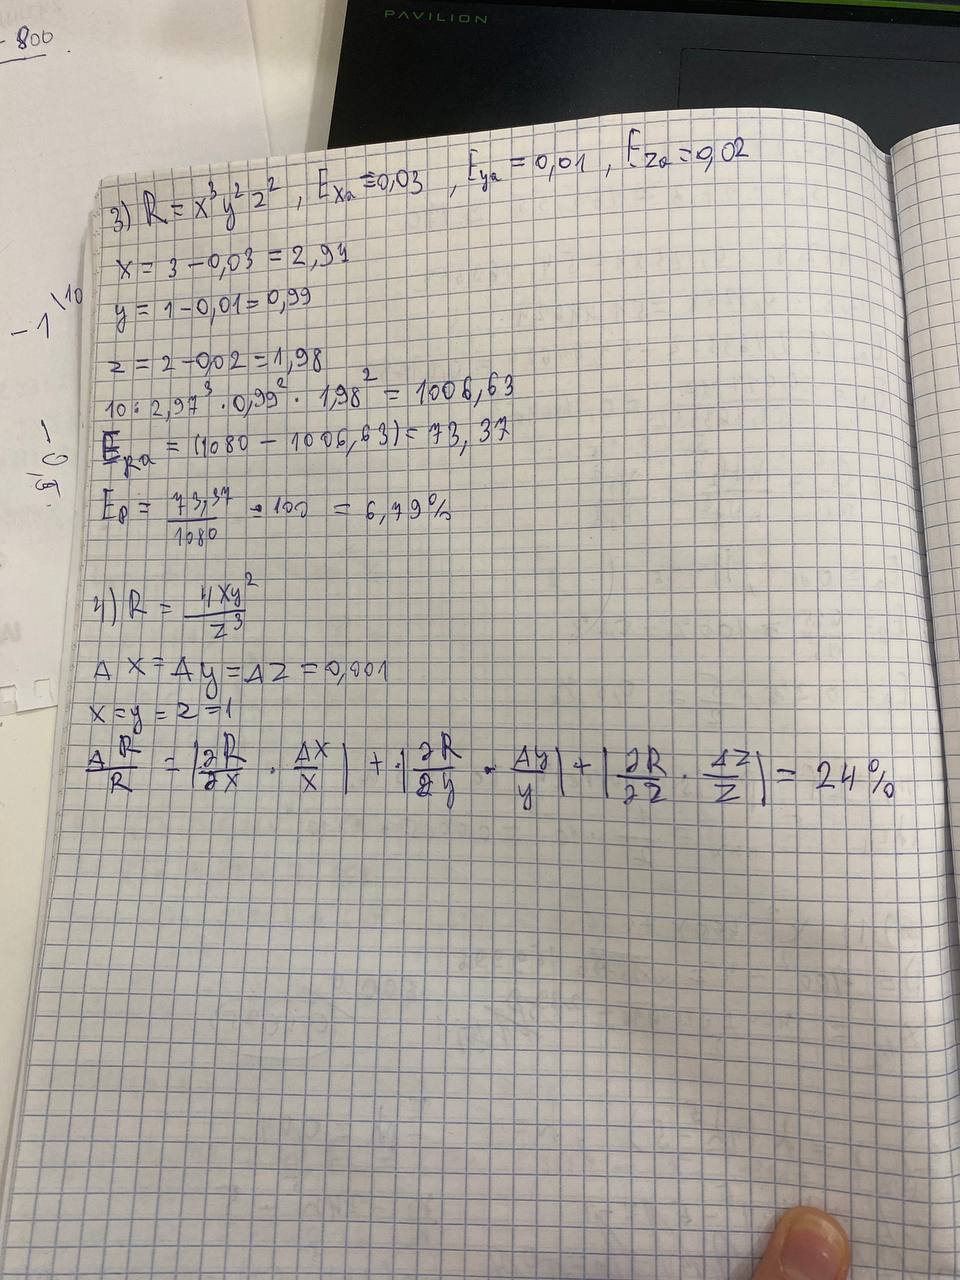 PAVILION
- 800
3) R = x³y²z² , E_xa = 0,03 , E_ya = 0,01 , E_za = 0,02
x = 3 - 0,03 = 2,97
y = 1 - 0,01 = 0,99
z = 2 - 0,02 = 1,98
10 · 2,97³ · 0,99² · 1,98² = 1006,63
E_Ra = (1080 - 1006,63) = 73,37
E_p = 73,37/1080 · 100 = 6,79%
4) R = 4xy²/z³
Δx = Δy = Δz = 0,001
x = y = z = 1
ΔR/R = |∂R/∂x · Δx/x| + |∂R/∂y · Δy/y| + |∂R/∂z · Δz/z| = 24%
-1\10